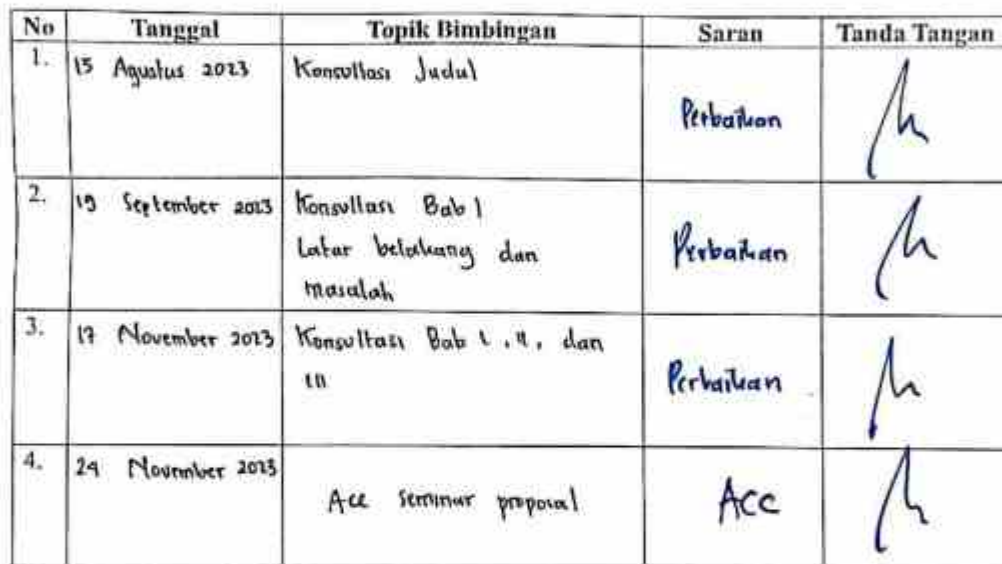 No Tanggal Topik Bimbingan Saran Tanda Tangan
1. 15 Agustus 2023 Konsultasi Judul Perbaikan
2. 19 September 2023 Konsultasi Bab 1 Perbaikan
Latar belakang dan
masalah
3. 17 November 2023 Konsultasi Bab I, II, dan Perbaikan
III
4. 24 November 2023 Acc seminar proposal ACC